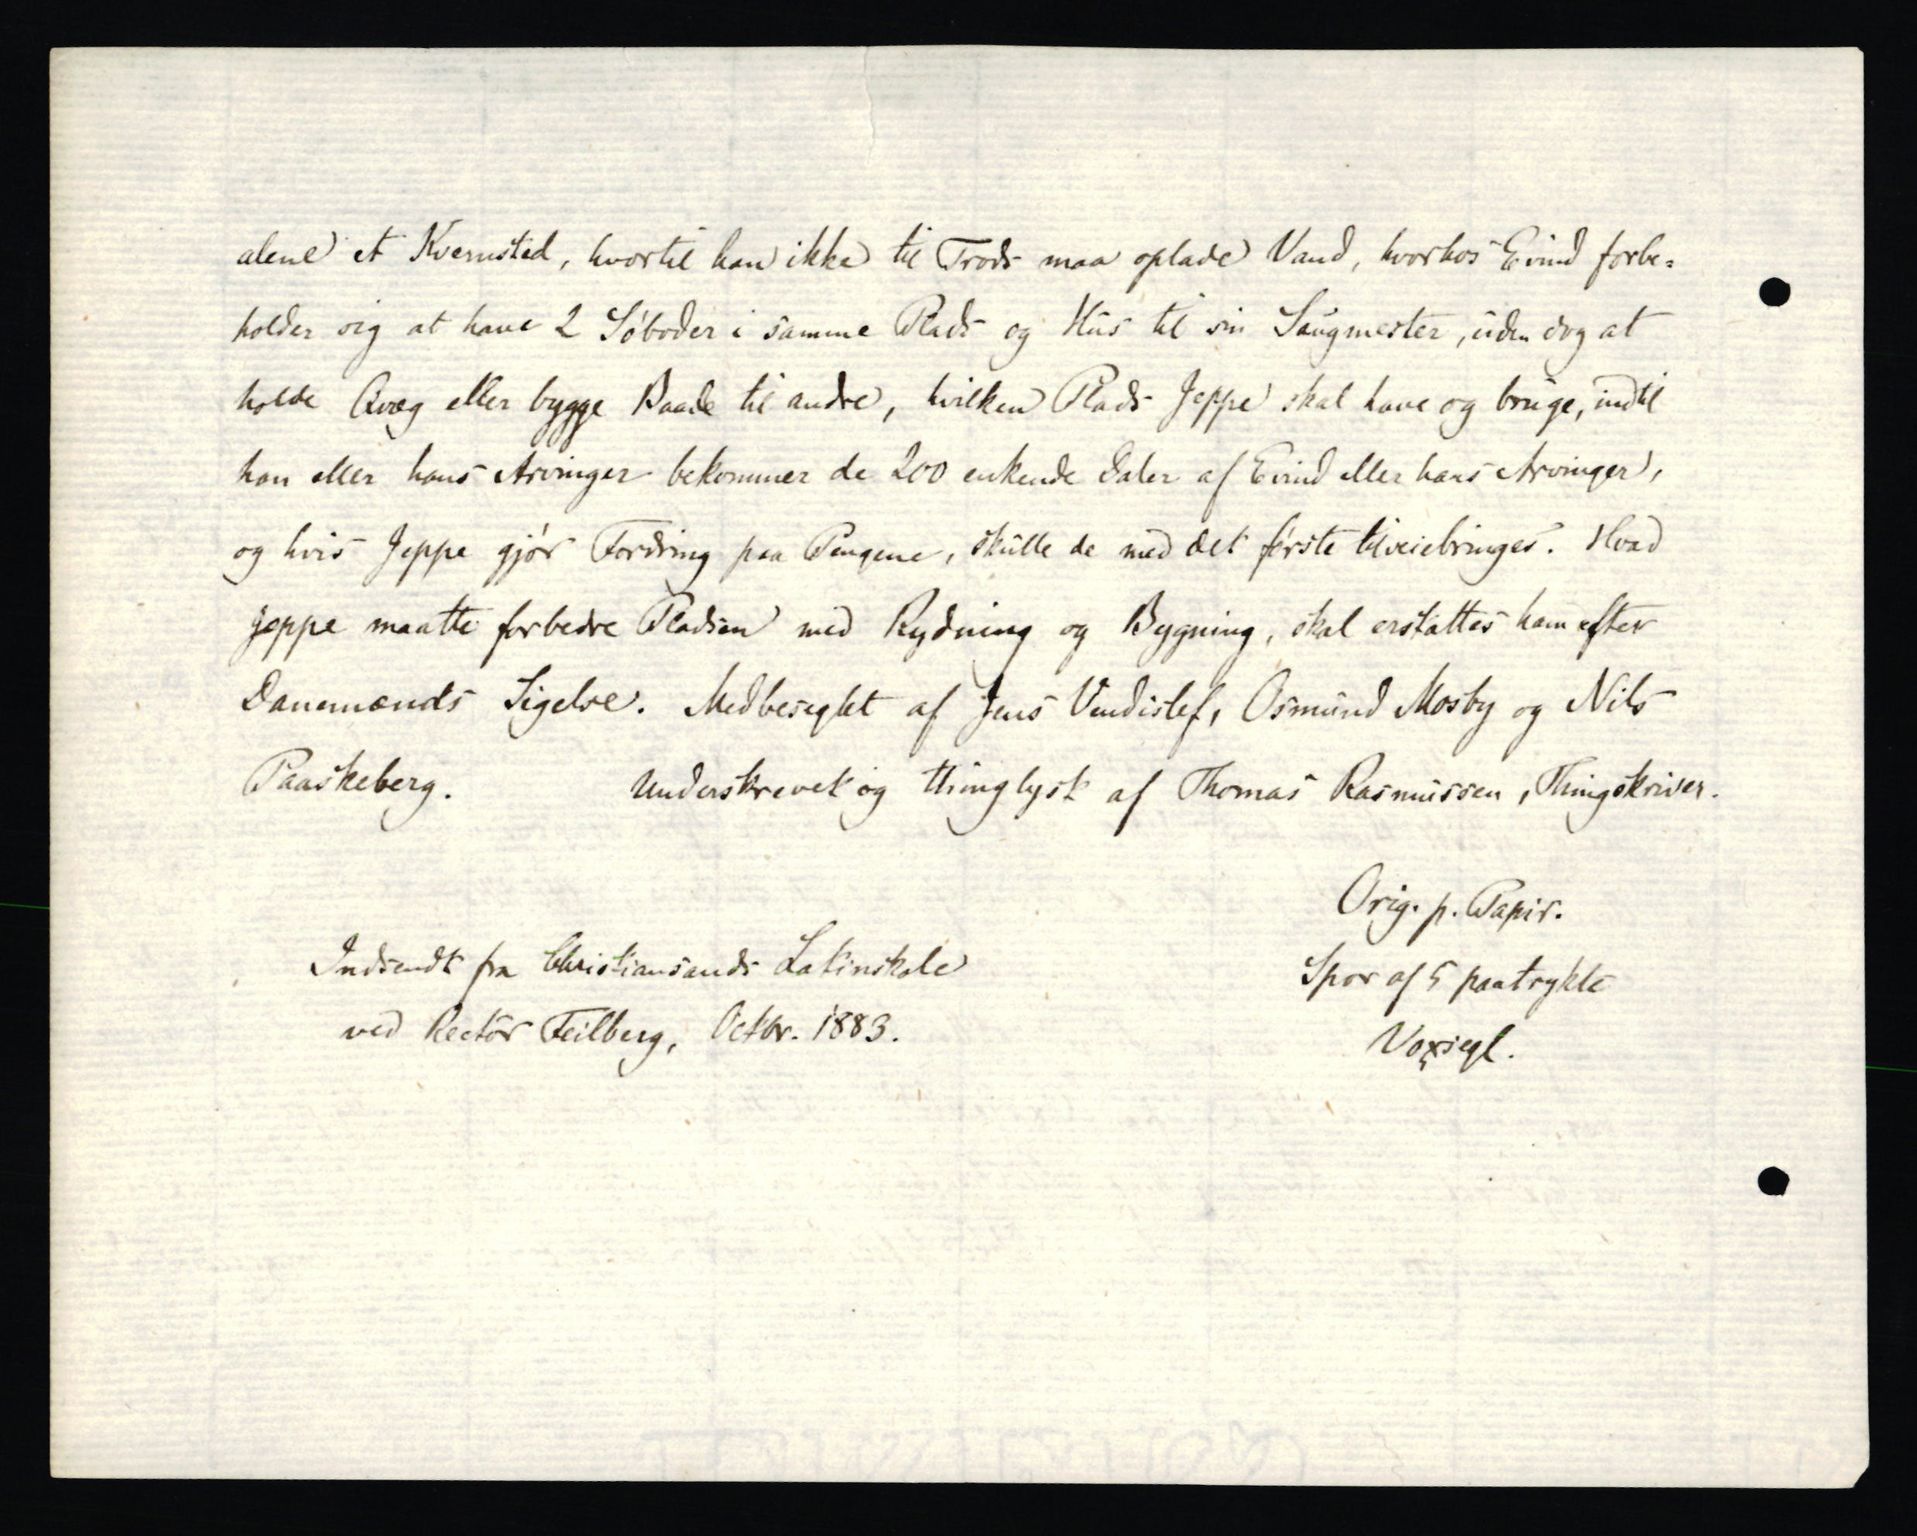 alene et Kvernsted, hvortil han ikke til Trods maa oplade Vand, hvorhos Eivind forbe=
holder sig at have 2 Söboder i samme Plads og Hus til sin Saugmester, uden dog at
holde Qvæg eller bygge Baade til andre, hvilken Plads Jeppe skal have og bruge, indtil
han eller hans Arvinger bekommer de 200 enkende Daler af Evind eller hans Arvinger,
og hvis Jeppe gjör Fordring paa Pengene, skulle de med det förste tilveiebringes. Hvad
Jeppe maatte forbedre Pladsen med Rydning og Bygning, skal erstattes ham efter
Danemænds Sigelse. Medbeseglet af Jens Vendislef, Osmund Mosby og Nils
Paaskeberg. Underskrevet og thinglyst af Thomas Rasmussen, Thingskriver.
Orig. p. Papir.
Spor af 5 paatrykte
Voxsegl.
Indsendt fra Christiansands Latinskole
ved Rector Feilberg, Octbr. 1883.